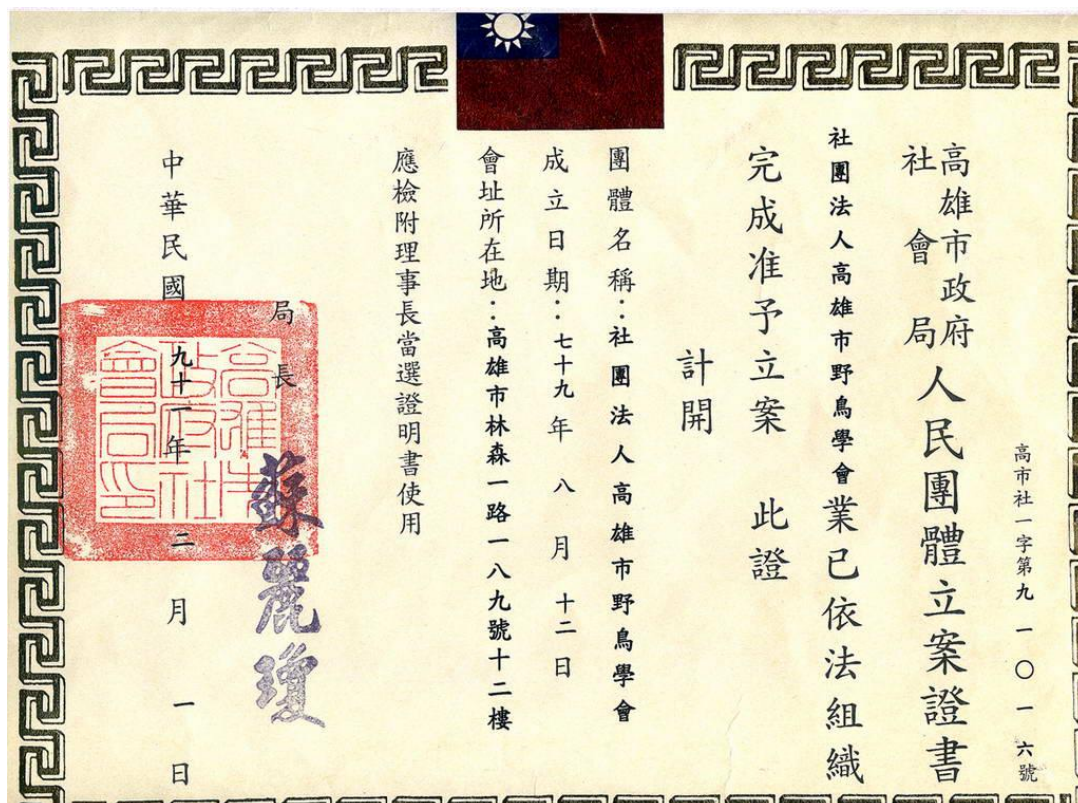 高市社一字第九一〇一六號
高雄市政府社會局人民團體立案證書
社團法人高雄市野鳥學會業已依法組織
完成准予立案 此證
計開
團體名稱：社團法人高雄市野鳥學會
成立日期：七十九年 八月 十二日
會址所在地：高雄市林森一路一八九號十二樓
應檢附理事長當選證明書使用
局長 蘇麗瓊
高雄市政府社會局印
中華民國九十一年 二月 一日